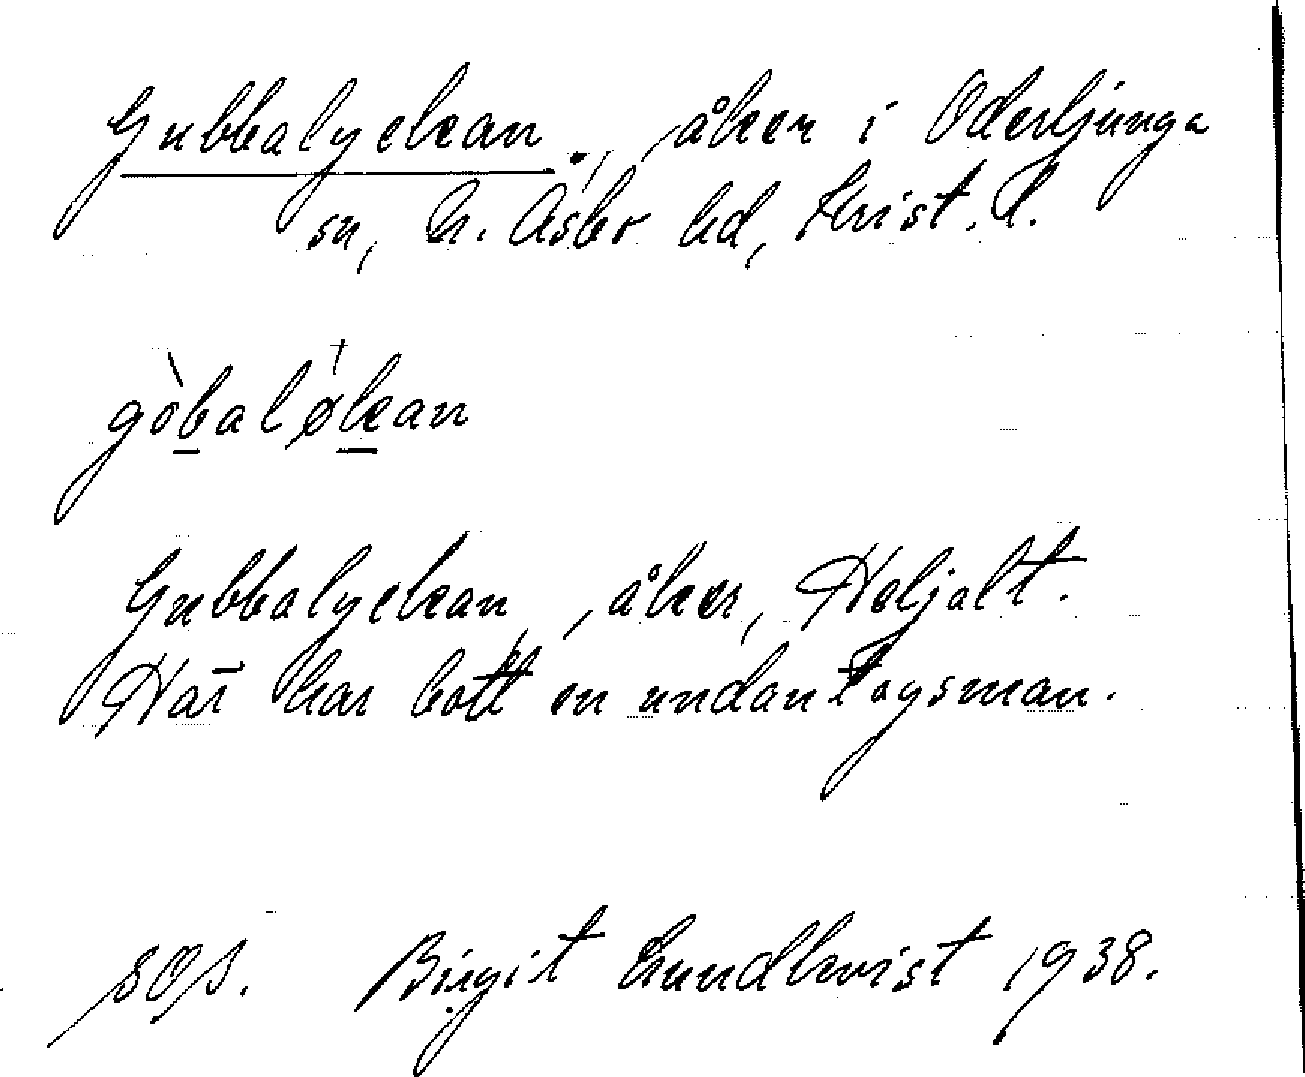 Gubbalyckan, åker i Oderljunga
sn, N. Åsbo hd, Krist. l.
gòbaløkan
Gubbalyckan, åker, Heljalt.
Här har bott en undantagsman.
Birgit Lundkvist 1938.